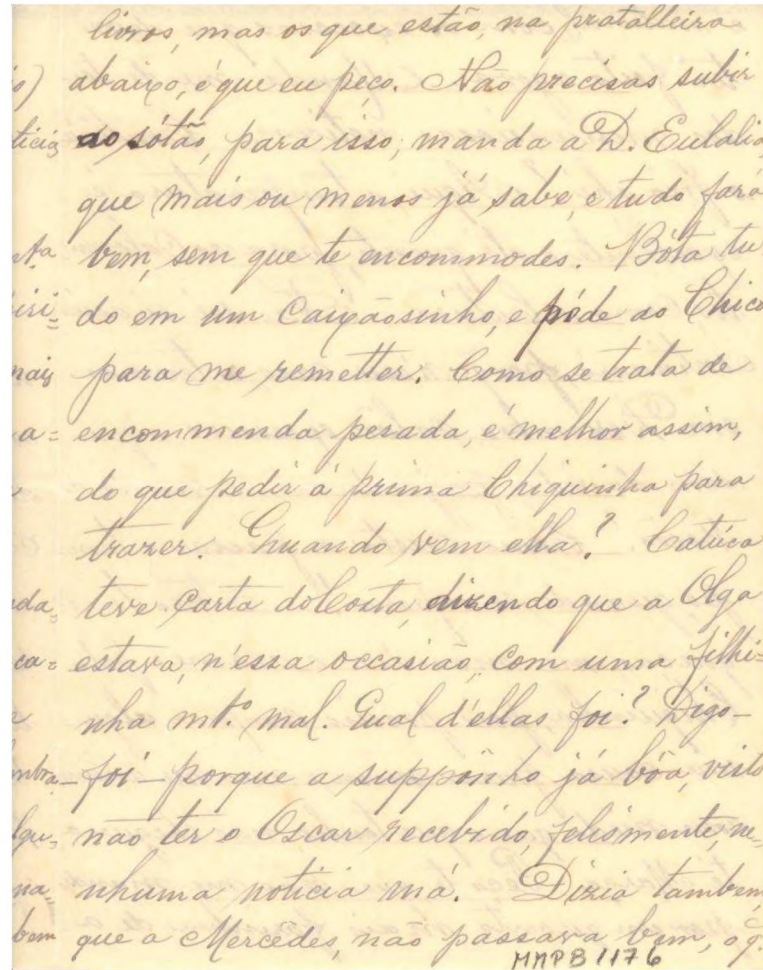 livros, mas os que estão, na pratalleira
abaixo, é que eu peço. Não precisas subir
ao sótão, para isso; manda a D. Eulalia,
que mais ou menos já sabe, e tudo fará
bem, sem que te encommodes. Bóta tu-
do em um caixãosinho, e péde ao Chico
para me remetter. Como se trata de
encommenda pesada, é melhor assim,
do que pedir á prima Chiquinha para
trazer. Quando vem ella? Catúca
teve carta do Costa, dizendo que a Olga
estava, n'essa occasião, com uma filhi=
nha mt.º mal. Qual d'ellas foi? Digo-
-foi- porque a suppônho já bôa, visto
não ter o Oscar recebido, felismente, ne-
nhuma noticia má. Dizia tambem,
que a Mercêdes, não passava bem, o q.
MMPB 1176